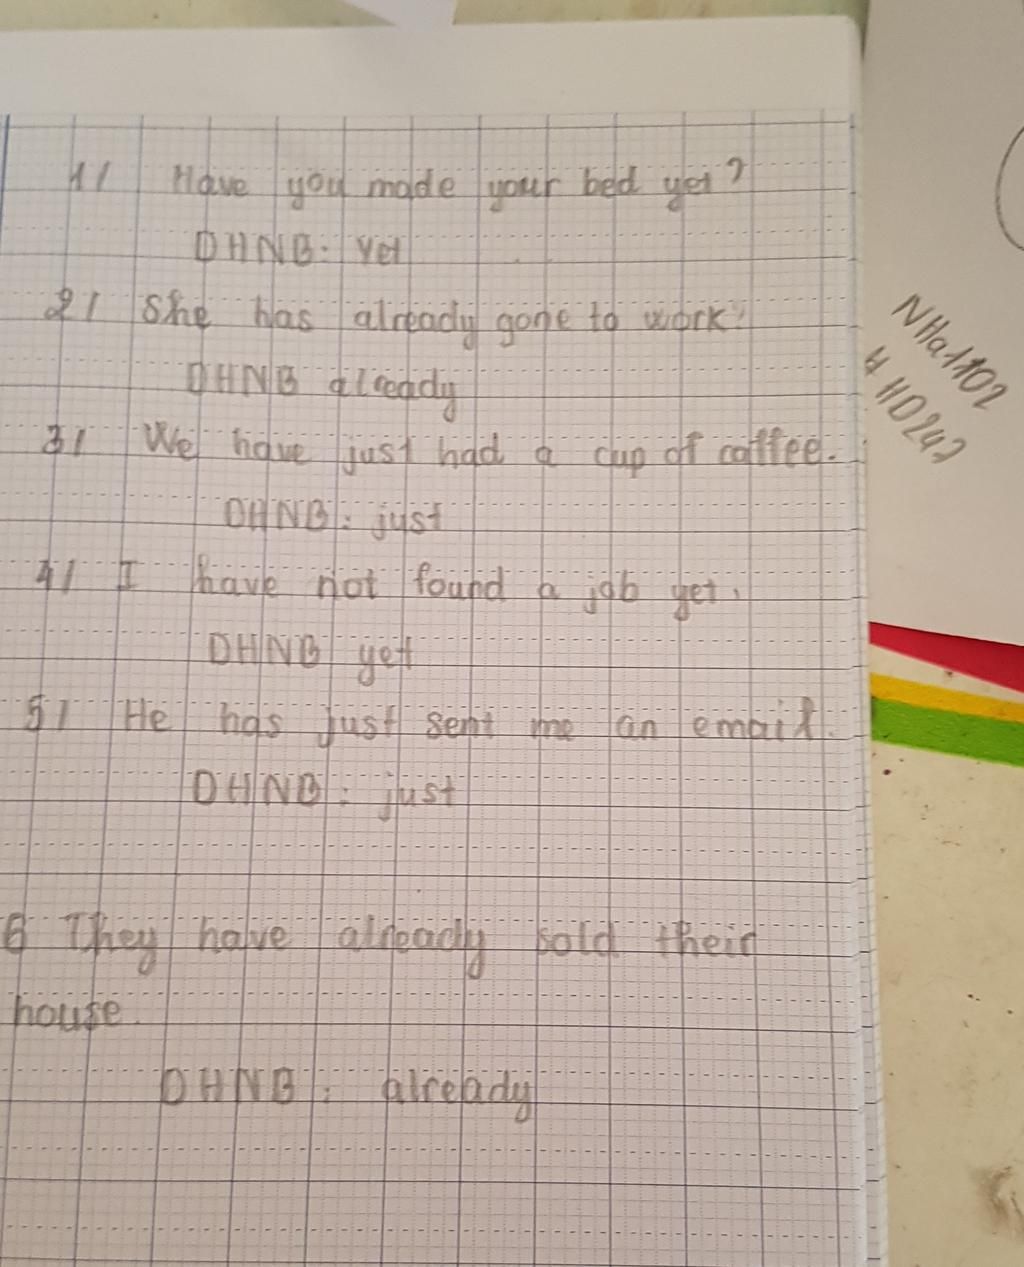 1/ Have you made your bed yet?
DHNB: yet
2/ She has already gone to work.
DHNB already
3/ We have just had a cup of coffee.
DHNB: just
4/ I have not found a job yet.
DHNB yet
5/ He has just sent me an email.
DHNB: just
6 They have already sold their
house.
DHNB: already
NHa1102